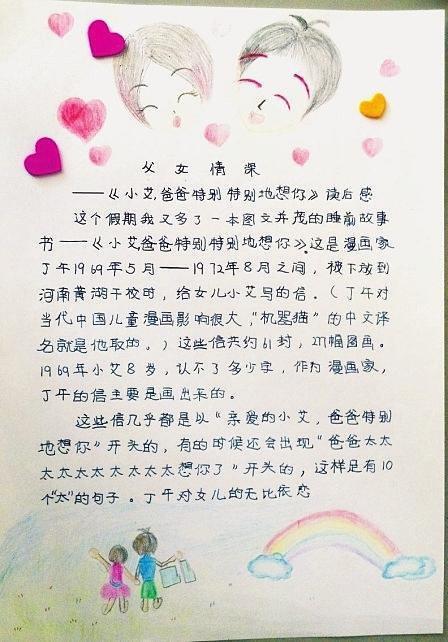 父女情深
——《小艾,爸爸特别特别地想你》读后感
这个假期我又多了一本图文并茂的睡前故事
书——《小艾,爸爸特别特别地想你》。这是漫画家
丁午1969年5月——1972年8月之间,被下放到
河南黄湖干校时,给女儿小艾写的信。(丁午对
当代中国儿童漫画影响很大,"机器猫"的中文译
名就是他取的。)这些信共约61封,271幅图画。
1969年小艾8岁,认不了多少字,作为漫画家,
丁午的信主要是画出来的。
这些信几乎都是以"亲爱的小艾,爸爸特别
地想你"开头的,有的时候还会出现"爸爸太太
太太太太太太太太想你了"开头的,这样足有10
个"太"的句子。丁午对女儿的无比依恋